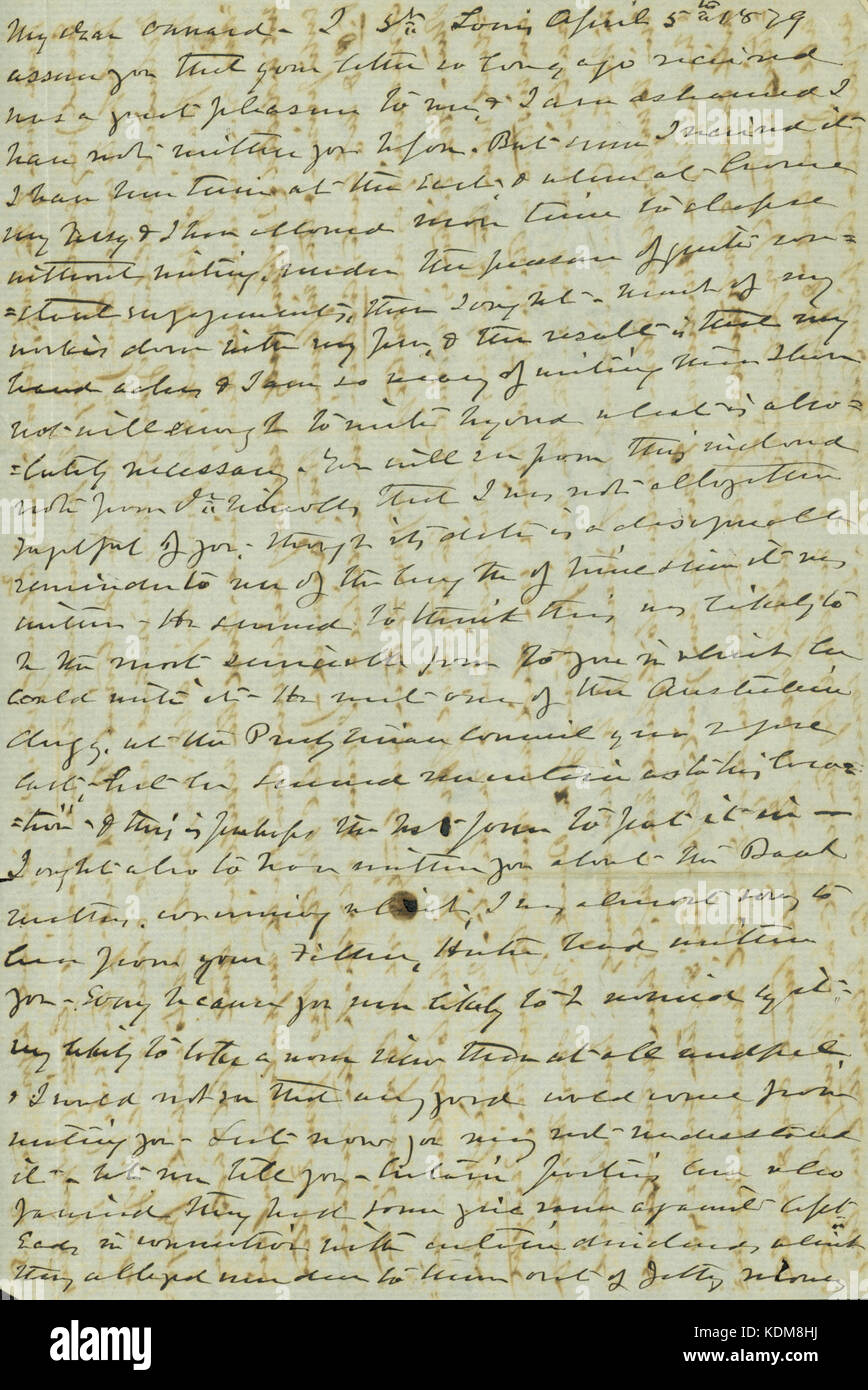 My dear              - I St Louis April 5th 1879
assure you that your letter so long ago received
was a great pleasure to me, & I am ashamed I
have not written you before. But since I received it
I have been twice at the East, & when at home
very busy & I have allowed more time to elapse
without writing, under the pressure of quite con=
=stant engagements, than I ought - much of my
work is done with my pen, & the result is that my
hand aches & I am so weary of writing then I have
not will enough to write beyond what is abso=
=lutely necessary. You will see from the inclosed
note from Dr Niccolls that I was not altogether
neglectful of you, though its date is a disagreeable
reminder to me of the length of time since it was
written - He seemed to think this was likely to
be the most serviceable form to you in which he
could write it - He met one of the Australian
clergy, at the Presbyterian Council year before
last, but he seemed uncertain as to his loca=
=tion - & this is perhaps the best form to put it in —
I ought also to have written you about the Book
matter, concerning which, I was almost sorry to
hear from your Father, that he had written
you - Sorry because you were likely to be worried by it -
very likely to take a worse view than at all
& I could not see that any good could come from
writing you - Lest now you may not understand
it - let me tell you - Certain parties here who
fancied they had some grievance against Capt
Eads in connection with certain dividends, which
they alleged were due to them out of Jetty money
alamy
alamy
Image ID: KDM8HJ
www.alamy.com